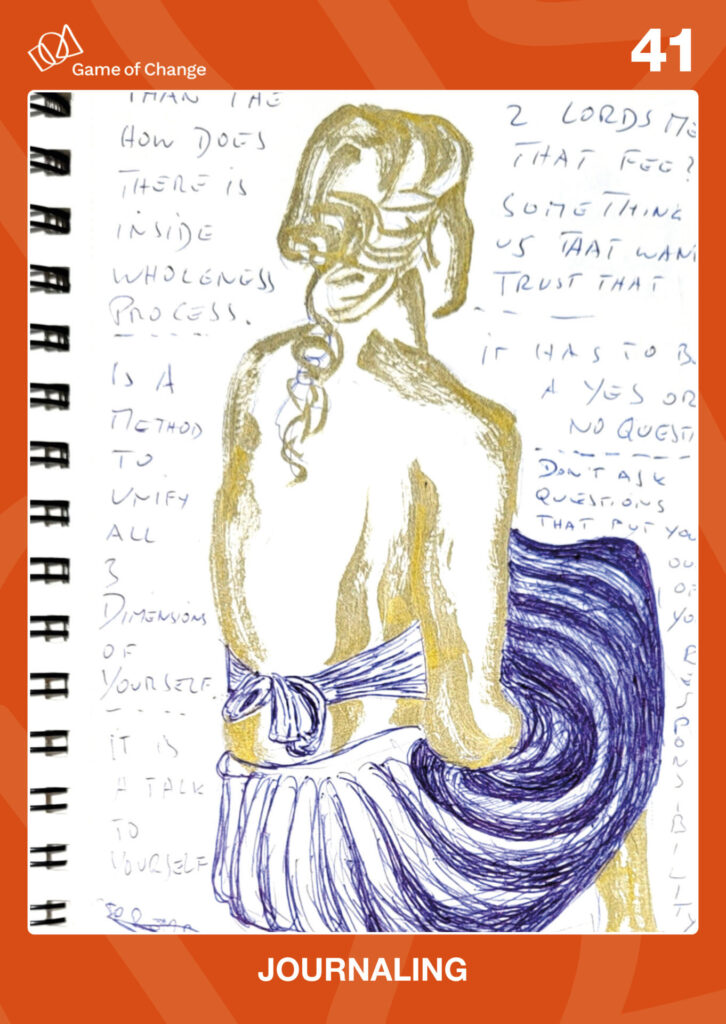 Game of Change
41
THAN THE
HOW DOES
THERE IS
INSIDE
WHOLENESS
PROCESS.
IS A
METHOD
TO
UNIFY
ALL
3
DIMENSIONS
OF
YOURSELF.
IT IS
A TALK
TO
YOURSELF
2 LORDS ME
THAT FEE?
SOMETHING
US THAT WAN
TRUST THAT
IT HAS TO B
A YES OR
NO QUESTI
DON'T ASK
QUESTIONS
THAT PUT YOU
OU
OF
YO
R
ESPONSIBILITY
JOURNALING